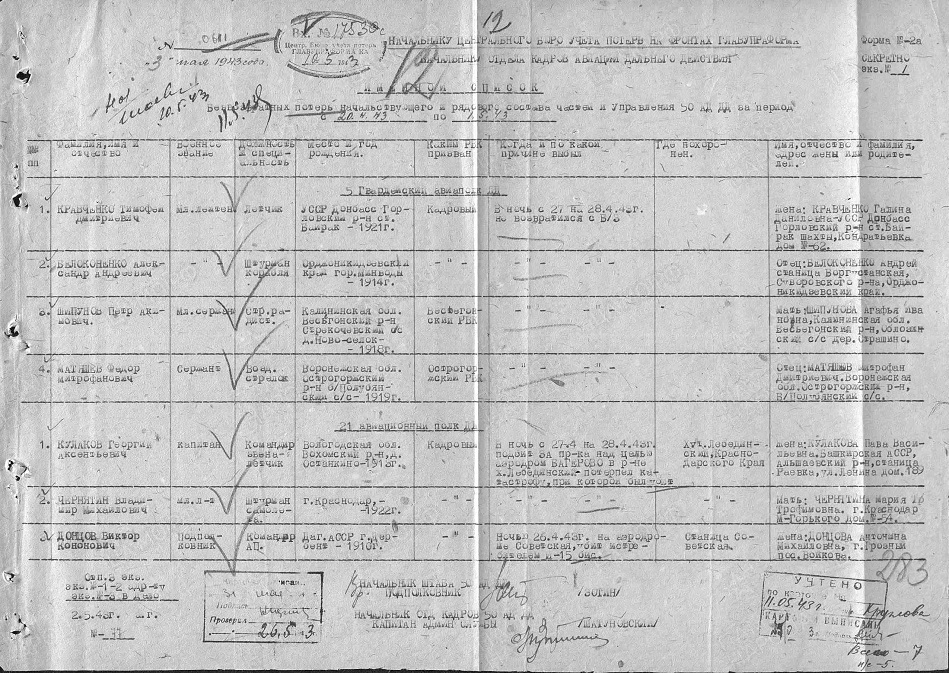 12
№ 0611
"3" мая 1943 года
Вх. № 17530с
Центр. бюро учета потерь
10.5.43
НАЧАЛЬНИКУ ЦЕНТРАЛЬНОГО БЮРО УЧЕТА ПОТЕРЬ НА ФРОНТАХ ГЛАВУПРАФОРМА
Форма №-2а
НАЧАЛЬНИКУ ОТДЕЛА КАДРОВ АВИАЦИИ ДАЛЬНЕГО ДЕЙСТВИЯ
СЕКРЕТНО
экз.№ 1
12
10.5.43
11.5.43
ИМЕННОЙ СПИСОК
Безвозвратных потерь начальствующего и рядового состава частей и Управления 50 АД ДД за период
с 20.4.43 по 1.5.43
№№ пп
Фамилия, имя и отчество
Военное звание
Должность и специальность
Место и год рождения.
Каким РВК призван
Когда и по какой причине выбыл
Где похоронен.
Имя, отчество и фамилия, адрес жены или родителей.
5 Гвардейский авиаполк ДД
1. КРАВЧЕНКО Тимофей Дмитриевич
Мл.лейтен
Летчик
УССР Донбасс Горловский р-н ст. Байрак - 1921г.
Кадровый
В ночь с 27 на 28.4.43г. не возвратился с Б/З
жена: КРАВЧЕНКО Галина Даниловна-УССР Донбасс Горловский р-н ст.Байрак шахты, Кондратьевка дом №-62.
2. БЕЛОКОНЕНКО Александр Андреевич
- " -
Штурман корабля
Орджоникидзевский край гор.Минводы - 1914г.
- " -
- " - - " -
Отец: БЕЛОКОНЕНКО Андрей станица Боргустанская, Суворовского р-на, Орджоникидзевский край.
3. ШИПУНОВ Петр Акимович.
Мл.сержан
Стр.радист.
Калининская обл. Весьегонский р-н Стрекочевский с/с д.Ново-селок - 1918г.
Весьегонский РВК
- " - - " -
Мать: ШИПУНОВА Агафья Ивановна, Калининская обл. Весьегонский р-н, с/с дер.Страшино.
4. МАТЯШЕВ Федор Митрофанович
Сержант
Возд. стрелок
Воронежская обл. Острогожский р-н с/с - 1919г.
Острогожский РВК
- " - - " -
Отец: МАТЯШЕВ Митрофан Дмитриевич. Воронежская обл. Острогожский р-н, с/с.
21 авиационный полк ДД
1. КУЛАКОВ Георгий Аксентьевич
капитан
Командир звена-летчик
Вологодская обл. Вохомский р-н, д. Останкино-1913г.
Кадровый
В ночь с 27.4 на 28.4.43г. подбит ЗА пр-ка над целью аэродром БАГЕРОВО в р-не х.Лебединский потерпел катастрофу, при которой был убит
Хут.Лебединский, Краснодарского Края
жена: КУЛАКОВА Васильевна. Башкирская АССР, Альшаевский р-н, станица Раевка, ул.Ленина дом.189
2. ЧЕРНЯТИН Владимир Михайлович
мл.л-т
Штурман самолета.
г.Краснодар, - 1922г.
- " -
- " - - " -
- " -
Мать: ЧЕРНЯТИНА Мария Трофимовна. г.Краснодар М-Горького дом.№-54.
3. ДОНЦОВ Виктор Кононович
Подполковник
Командир АП.
Даг.АССР г.Дербент - 1910г.
- " -
Ночью 26.4.43г. на аэродроме Советская, убит истребителем И-15 бис.
Станица Советская.
жена: ДОНЦОВА Антонина Михайловна, г.Грозный пос.Войкова.
283
Отп.3 экз.
экз.№-1-2 адр-ту
экз.№-3 в дело
2.5.43г.
№-37
31 мая
Проверил
26.5.43
НАЧАЛЬНИК ШТАБА 50 АД ДД
ПОДПОЛКОВНИК /ЗОТИН/
НАЧАЛЬНИК ОТД КАДРОВ 50 АД ДД
КАПИТАН АДМИН СЛУЖБЫ /ШАТУНОВСКИЙ/
УЧТЕНО
11.05.43г.
Круглова
Всего - 7
н/с - 5.